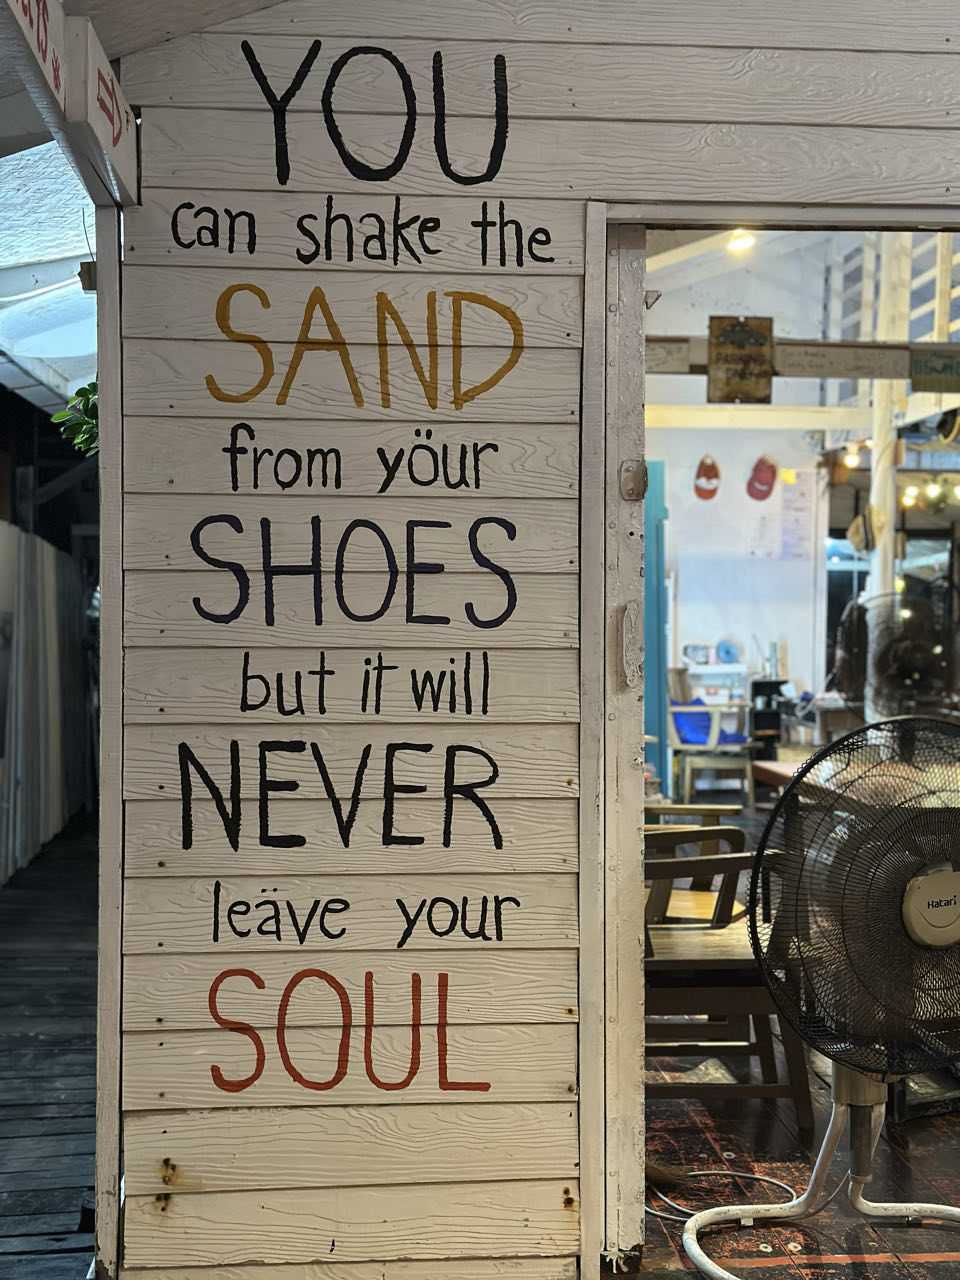 YOU
can shake the
SAND
from yöur
SHOES
but it will
NEVER
leäve your
SOUL
PARKING
Hatari